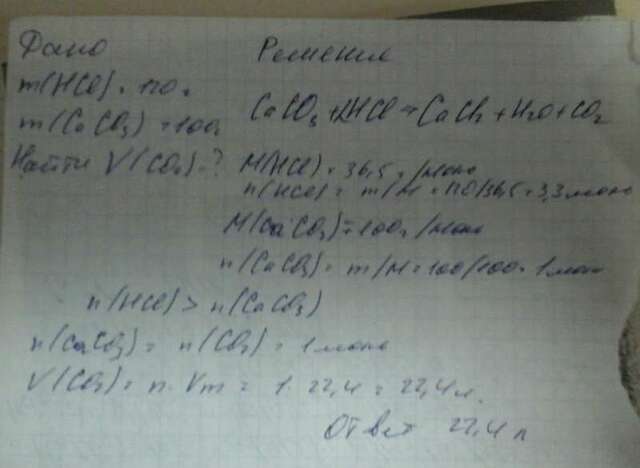 Дано
Решение
m(HCl) = 120 г
m(CaCO3) = 100г
CaCO3 + 2HCl = CaCl2 + H2O + CO2
Найти V(CO2) - ?
M(HCl) = 36,5 г/моль
n(HCl) = m/M = 120/36,5 = 3,3 моль
M(CaCO3) = 100г/моль
n(CaCO3) = m/M = 100/100 = 1 моль
n(HCl) > n(CaCO3)
n(CaCO3) = n(CO2) = 1 моль
V(CO2) = n · Vm = 1 · 22,4 = 22,4 л.
Ответ 22,4 л